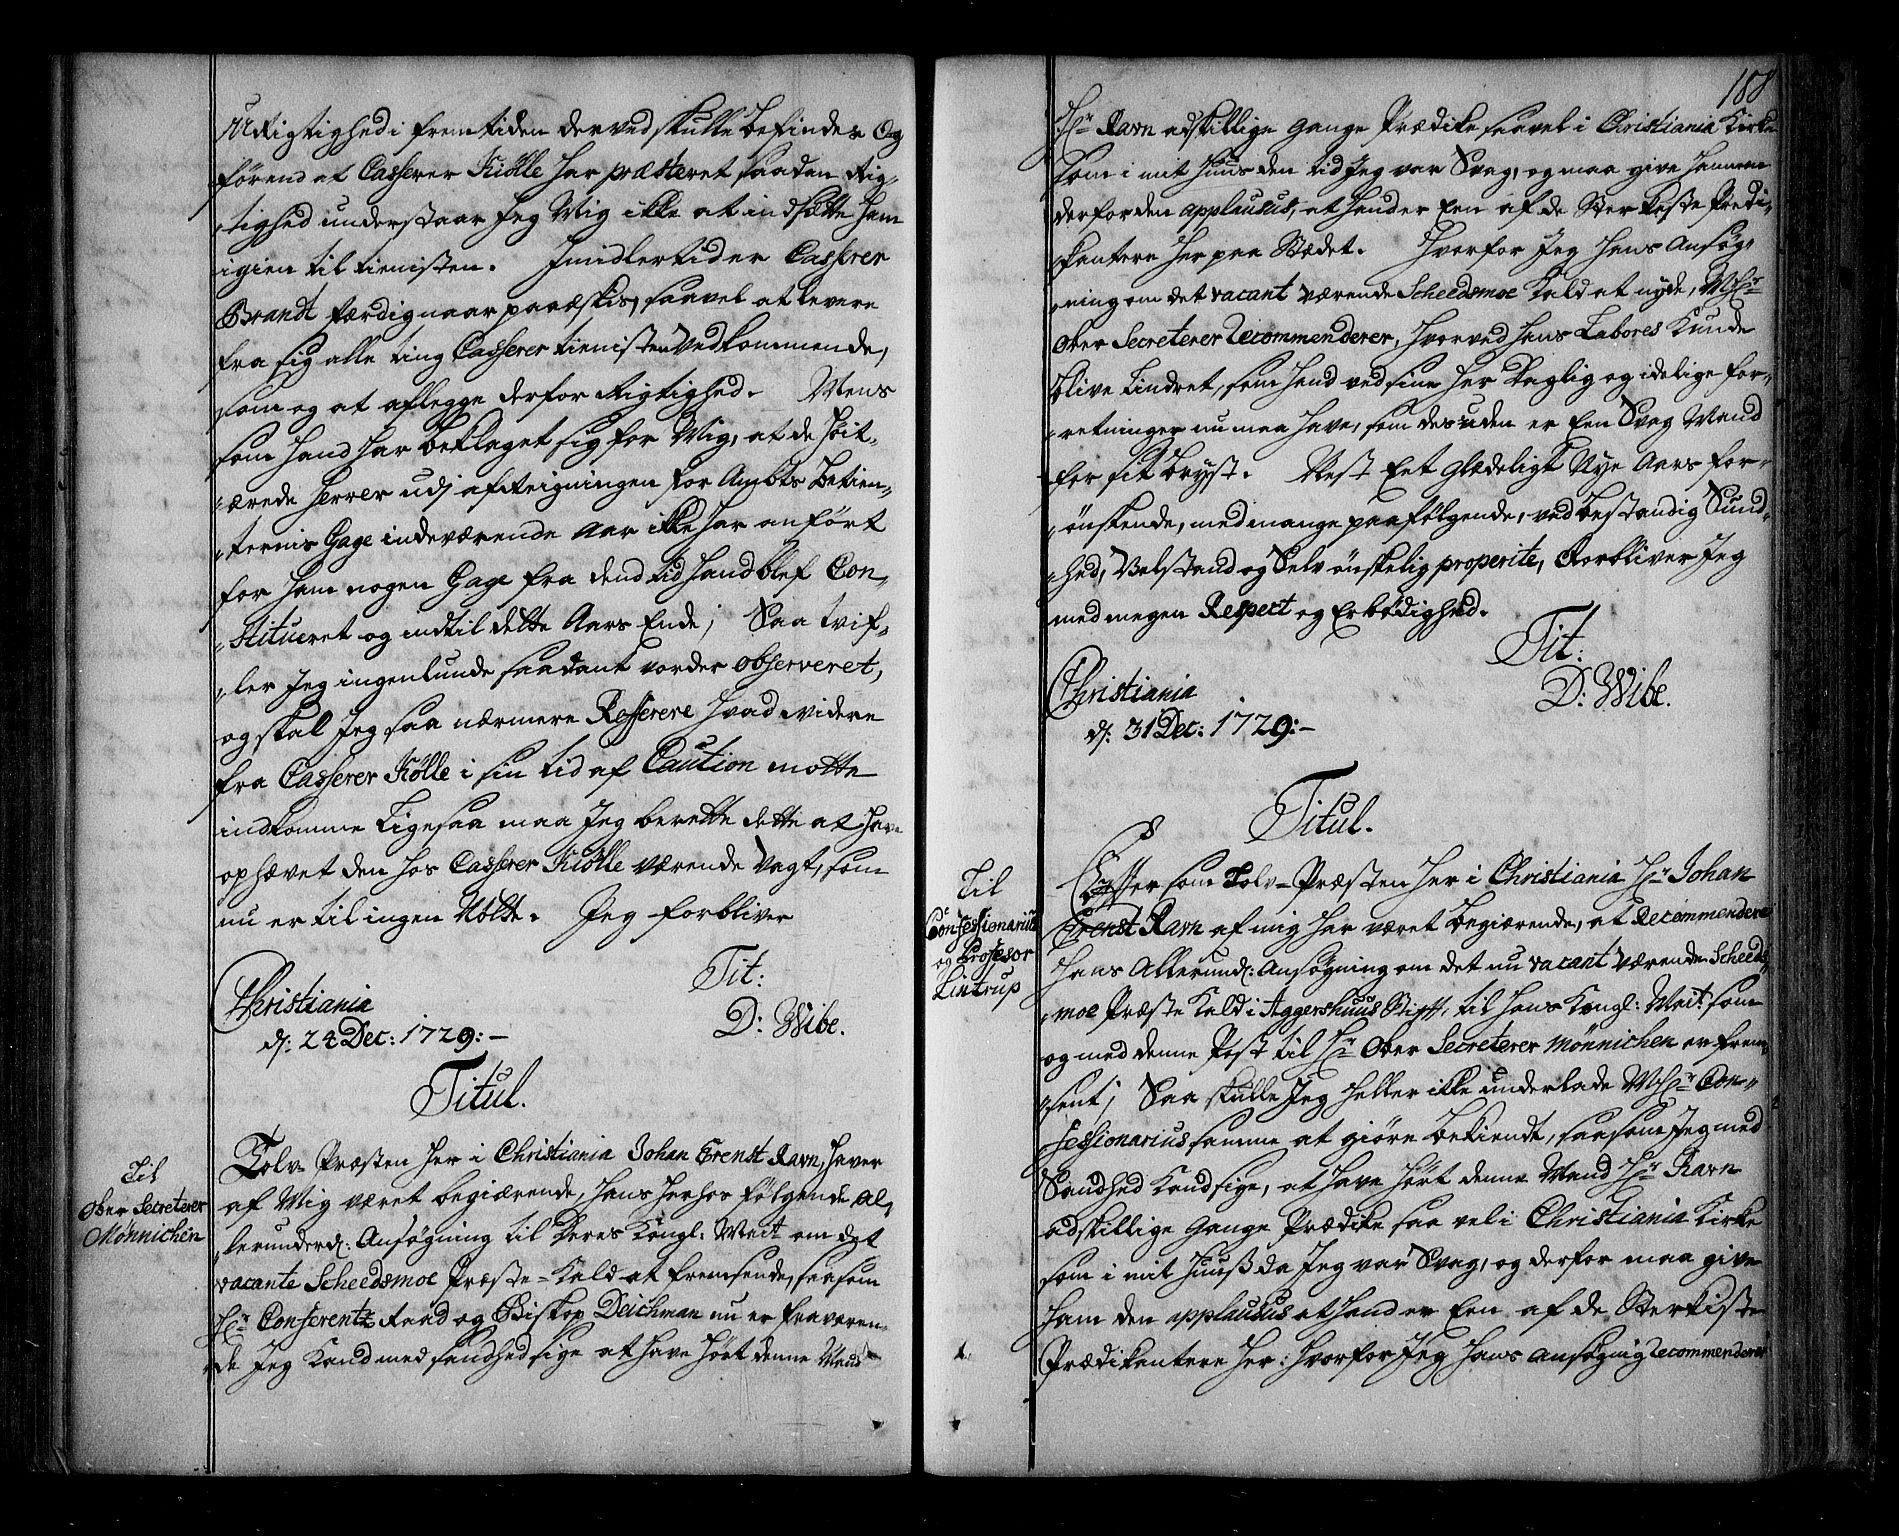 URigtighed i fremtiden derved skulle befindes Og
førend at Casserer Kiølle har præsteret saadan Rig-
tighed understaar Jeg Mig ikke at indsætte ham
igien til tienisten. Imidlertid er Casserer
Brandt færdig naar paaæskis, saavel at levere
fra sig alle ting Casserer tienisten Vedkommende,
som og at aflegge derfor Rigtighed. Mens
som hand har beklaget sig for Mig, at de høit-
ærede Herrer udj afReigningen for Ambts Betien-
ternis Gage indeværende Aar ikke har anført
for ham nogen Gage fra dend tid hand blef Con-
stitueret og indtil dette Aars Ende; Saa tvif-
ler Jeg ingenlunde saadant vorder observeret,
og skal Jeg saa nærmere Refferere hvad videre
fra Casserer Kiølle i sin tid af Caution motte
indkomme Ligesaa maa Jeg berette dette at have
ophævet den hos Casserer Kiølle værende Vagt, som
nu er til ingen Nötte. Jeg forbliver
Tit:
Christiania D: Wibe.
d: 24 Dec: 1729:-
Titul.
Til
Ober Secreterer
Mønnichen
Tolv-Præsten her i Christiania Johan Ernst Ravn, haver
af Mig været begiærende, hans herhos følgende al-
lerunderd: Ansøgning til Deres Kongl: Mait om det
vacante Scheedsmoe Præste-Kald at fremsende, saasom
Hr Conferentz Raad og Biskop Deichman nu er fraværen-
de Jeg Kand med sandhed sige at have hørt denne Mand
188
Hr Ravn adskillige gange Prædike saavel i Christiania Kirke
som i mit huus den tid Jeg var Svag, og maa give hannem
derfor den applausus, at hand er Een af de Sterkeste Predi-
kantere her paa Stædet. Hvorfor Jeg hans Ansøg-
ning om det vacant værende Scheedsmoe Kald at nyde, MHr
Ober Secreterer Recommenderer, hvorved hans Labores Kunde
blive Lindret, som hand ved sine her daglig og idelige for-
retninger nu maa have, som desuden er Een Svag Mand
for sit bryst. Nest Eet glædeligt Nye Aars for-
ønskende, med mange paafølgende, ved bestandig Sund-
hed, Velstand og Selv ønskelig properite, Forbliver Jeg
med megen Respect og Erbødighed.
Tit:
Christiania D: Wibe.
d: 31 Dec: 1729:-
Titul.
Til
Confessionarius
og Profesor
Lintrup
Efftersom Tolv-Præsten her i Christiania Hr Johan
Ernst Ravn af mig har været begiærende, at Recommendere
hans Allerund: Ansøgning om det nu vacant værende Scheeds-
moe Præste Kald i Aggershuus Stigt, til hans Kongl: Mait: som
og med denne Post til Hr Ober Secreterer Mønnichen er frem-
sent; Saa skulle Jeg heller ikke underlade MHr Con-
fessionarius samme at giøre bekiendt, saasom Jeg med
Sandhed Kand sige, at have hørt denne Mand Hr Ravn
adskillige Gange Prædike saa vel i Christiania Kirke
som i mit huuß da Jeg var Svag, og derfor maa give
ham den applausus at hand er Een af de Sterkiste
Prædikantere her: hvorfor Jeg hans ansøgnig Recommenderer